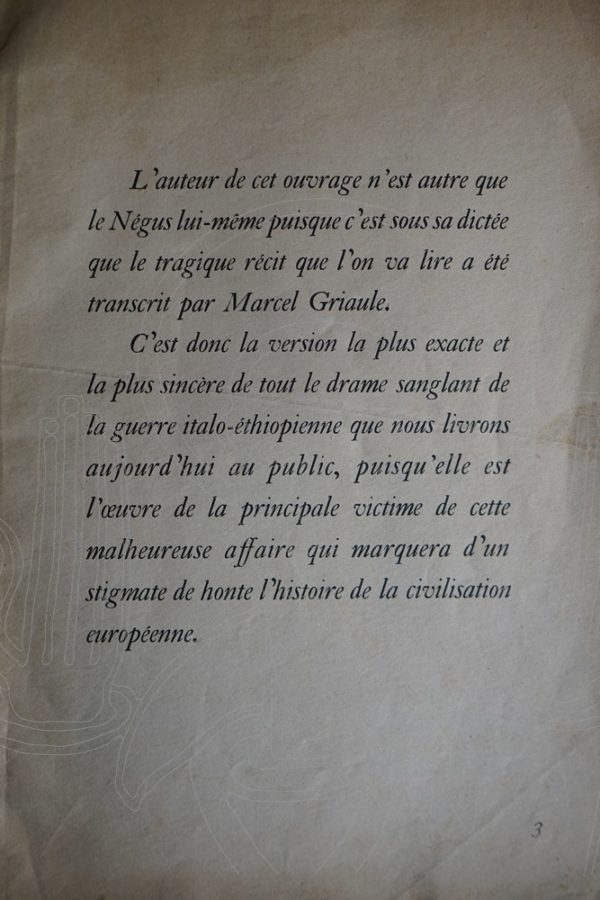 L'auteur de cet ouvrage n'est autre que
le Négus lui-même puisque c'est sous sa dictée
que le tragique récit que l'on va lire a été
transcrit par Marcel Griaule.
C'est donc la version la plus exacte et
la plus sincère de tout le drame sanglant de
la guerre italo-éthiopienne que nous livrons
aujourd'hui au public, puisqu'elle est
l'œuvre de la principale victime de cette
malheureuse affaire qui marquera d'un
stigmate de honte l'histoire de la civilisation
européenne.
3